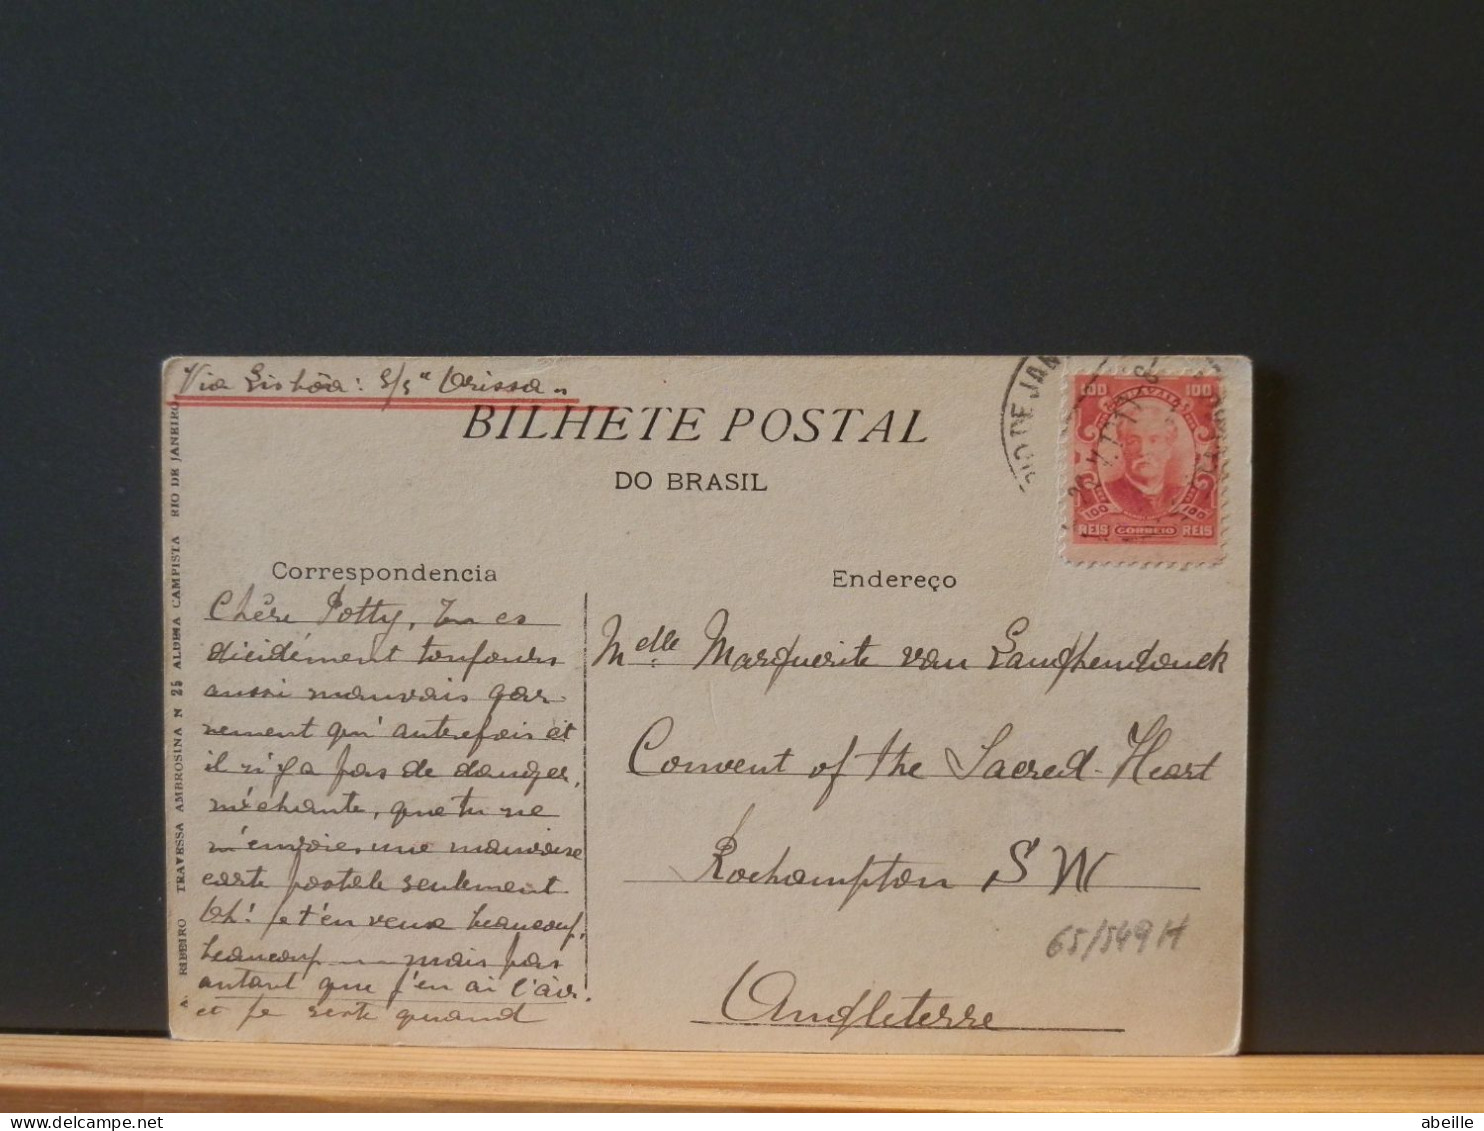 Via Lisbôa: S/S "Orissa"
BILHETE POSTAL
DO BRASIL
RIO DE JAN
100 100
100 100
REIS CORREIO REIS
A. RIBEIRO TRAVESSA AMBROSINA N 25 ALDEIA CAMPISTA RIO DE JANEIRO
Correspondencia
Chère Potty, Tu es
décidément toujours
aussi mauvais gar
nement qu'autrefois et
il n'y a pas de danger,
méchante, que tu ne
m'envoies une mauvaise
carte postale seulement
Oh! je t'en veux beaucoup,
beaucoup ... mais pas
autant que j'en ai l'air.
et je reste quand
Endereço
Melle Marguerite van Langhendonck
Convent of the Sacred-Heart
Rochampton S W
65/549H
Angleterre
abeille